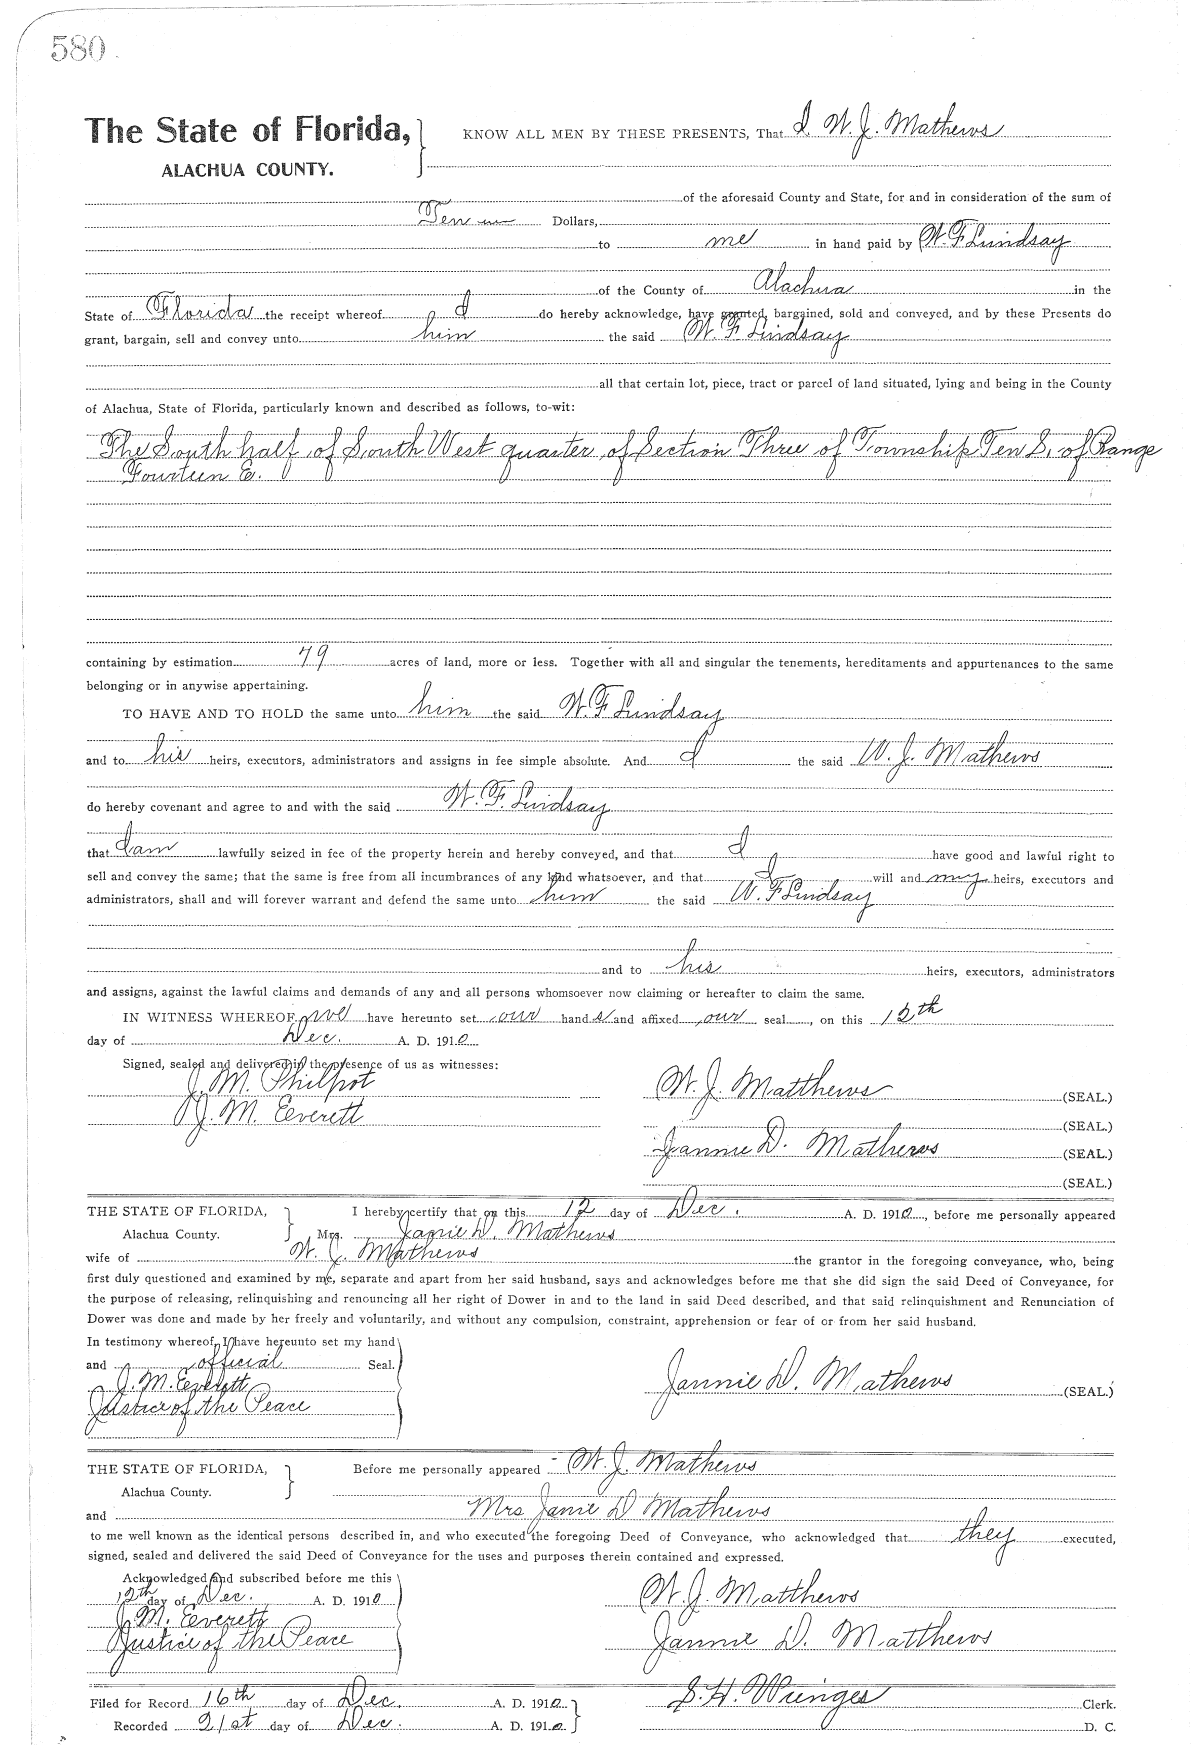 580
The State of Florida,
ALACHUA COUNTY.
KNOW ALL MEN BY THESE PRESENTS, That I W. J. Mathews
of the aforesaid County and State, for and in consideration of the sum of
Ten Dollars,
to me in hand paid by W. F. Lindsay
of the County of Alachua in the
State of Florida the receipt whereof I do hereby acknowledge, have granted, bargained, sold and conveyed, and by these Presents do
grant, bargain, sell and convey unto him the said W. F. Lindsay
all that certain lot, piece, tract or parcel of land situated, lying and being in the County
of Alachua, State of Florida, particularly known and described as follows, to-wit:
The South half of South West quarter of Section Three of Township Ten S, of Range
Fourteen E.
containing by estimation 79 acres of land, more or less. Together with all and singular the tenements, hereditaments and appurtenances to the same
belonging or in anywise appertaining.
TO HAVE AND TO HOLD the same unto him the said W. F. Lindsay
and to his heirs, executors, administrators and assigns in fee simple absolute. And I the said W. J. Mathews
do hereby covenant and agree to and with the said W. F. Lindsay
that I am lawfully seized in fee of the property herein and hereby conveyed, and that I have good and lawful right to
sell and convey the same; that the same is free from all incumbrances of any kind whatsoever, and that I will and my heirs, executors and
administrators, shall and will forever warrant and defend the same unto him the said W. F Lindsay
and to his heirs, executors, administrators
and assigns, against the lawful claims and demands of any and all persons whomsoever now claiming or hereafter to claim the same.
IN WITNESS WHEREOF, we have hereunto set our hands and affixed our seal, on this 12th
day of Dec. A. D. 1910.
Signed, sealed and delivered in the presence of us as witnesses:
J. M. Philpot
J. M. Everett
W. J. Matthews (SEAL.)
(SEAL.)
Jannie D. Mathews (SEAL.)
(SEAL.)
THE STATE OF FLORIDA,
Alachua County.
I hereby certify that on this 12 day of Dec. A. D. 1910, before me personally appeared
Mrs. Janie D. Mathews
wife of W. J. Mathews the grantor in the foregoing conveyance, who, being
first duly questioned and examined by me, separate and apart from her said husband, says and acknowledges before me that she did sign the said Deed of Conveyance, for
the purpose of releasing, relinquishing and renouncing all her right of Dower in and to the land in said Deed described, and that said relinquishment and Renunciation of
Dower was done and made by her freely and voluntarily, and without any compulsion, constraint, apprehension or fear of or from her said husband.
In testimony whereof, I have hereunto set my hand
and official Seal.
J. M. Everett
Justice of the Peace
Jannie D. Mathews (SEAL.)
THE STATE OF FLORIDA,
Alachua County.
Before me personally appeared W. J. Mathews
and Mrs Janie D Mathews
to me well known as the identical persons described in, and who executed the foregoing Deed of Conveyance, who acknowledged that they executed,
signed, sealed and delivered the said Deed of Conveyance for the uses and purposes therein contained and expressed.
Acknowledged and subscribed before me this
12th day of Dec. A. D. 1910
J. M. Everett
Justice of the Peace
W. J. Matthews
Jannie D. Matthews
Filed for Record 16th day of Dec. A. D. 1910.
Recorded 21st day of Dec. A. D. 1910.
S. H. Wienges Clerk.
D. C.